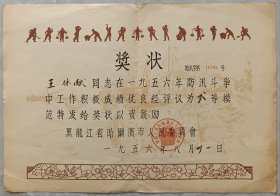 奖状
同志在一九五六年防汛斗争
中工作积极成绩优良经评议为 等模
范特发给奖状以资鼓励
黑龙江省哈尔滨市人民委员会
一九五六年八月 一日